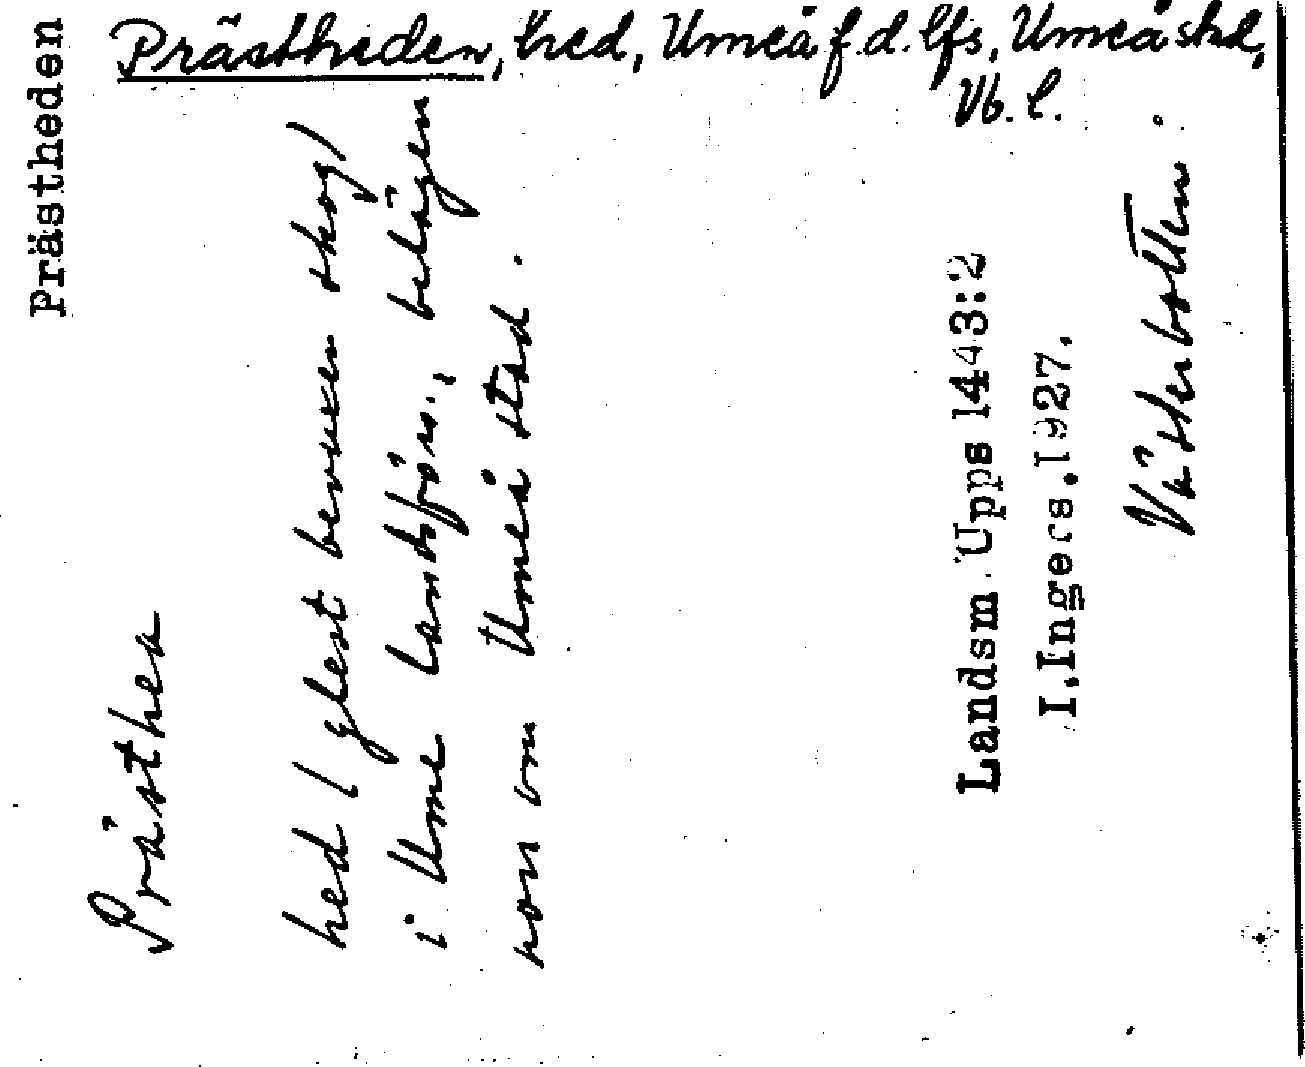 Prästheden, hed, Umeå f.d. lfs, Umeå skd,
Vb. l.
Prästheden
Prästhea
hed (glest bevuxen skog)
i Ume landsförs., belägen
norr om Umeå stad.
Landsm Upps 1443:2
I.Ingers.1927.
Västerbotten.